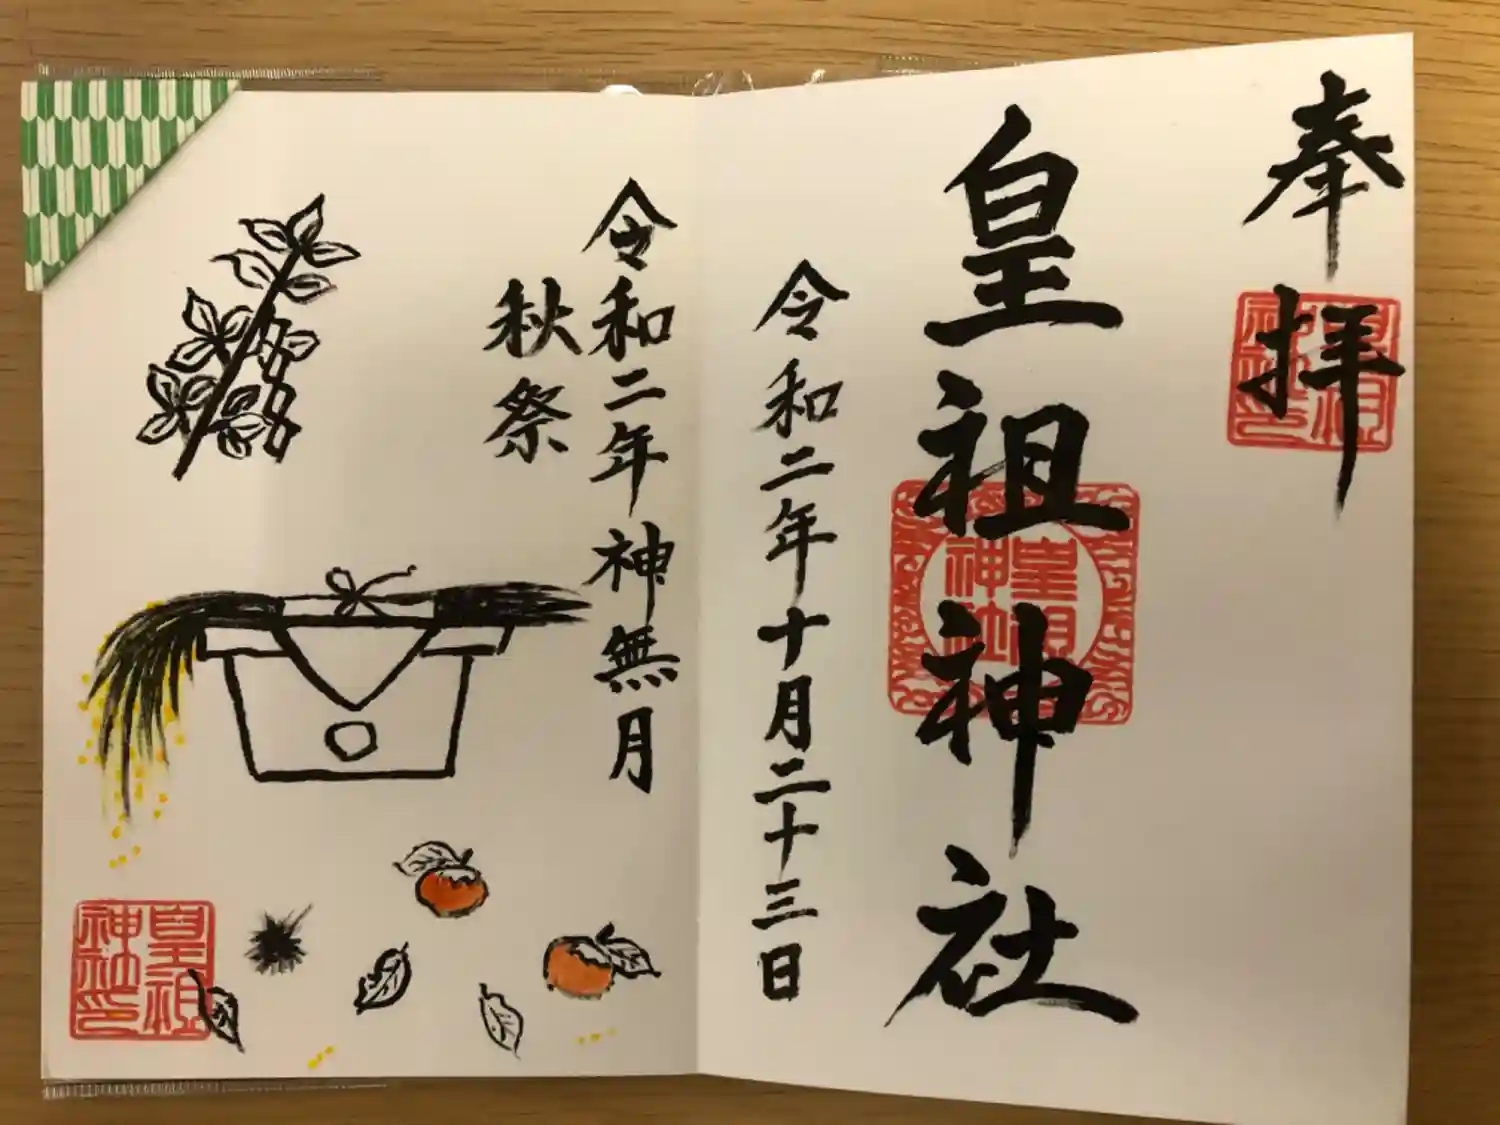 奉拝
皇祖神社
令和二年十月二十三日
令和二年神無月
秋祭
皇祖神社
皇祖神社印
皇祖神社印